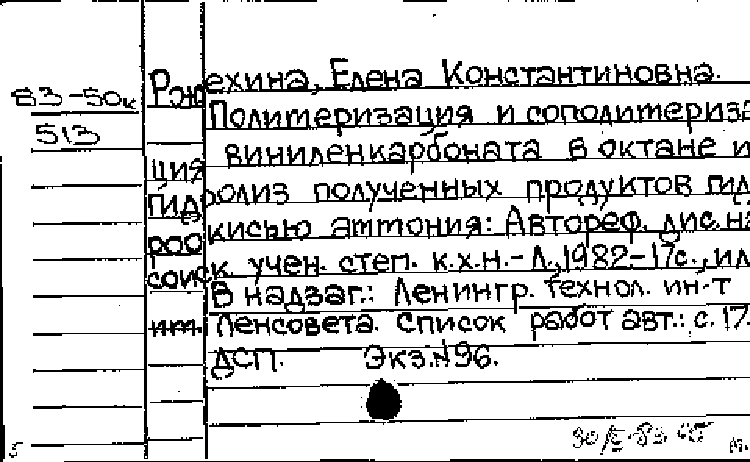 83-50к
513
Рожехина, Елена Константиновна.
Полимеризация и сополимериза
ция виниленкарбоната в октане и
гидролиз полученных продуктов гид
роокисью аммония: Автореф. дис. на
соиск. учен. степ. к.х.н. - Л., 1982 - 17с., ил
В надзаг.: Ленингр. технол. ин-т
им. Ленсовета. Список работ авт.: с. 17.
ДСП. Экз. №96.